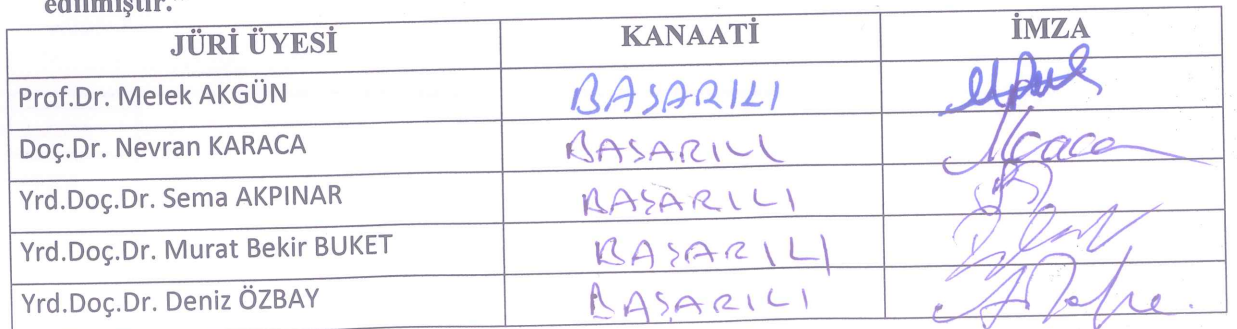 edilmiştir."
JÜRİ ÜYESİ KANAATİ İMZA
Prof.Dr. Melek AKGÜN BAŞARILI
Doç.Dr. Nevran KARACA BAŞARILI
Yrd.Doç.Dr. Sema AKPINAR BAŞARILI
Yrd.Doç.Dr. Murat Bekir BUKET BAŞARILI
Yrd.Doç.Dr. Deniz ÖZBAY BAŞARILI